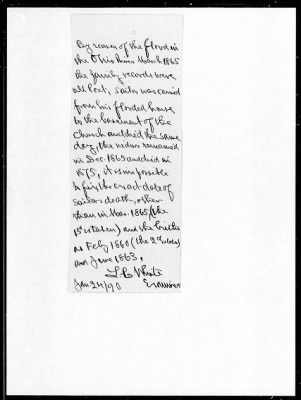 By reason of the flood in
the Ohio River March 1865
the family records were
all lost, sailor was carried
from his flooded house
to the basement of the
Church and died the same
day, the widow remarried
in Dec. 1865 and died in
1875, it is impossible
to fix the exact date of
sailors death, other
than in Mar. 1865 (the
1st taken) and the births
as Feby 1860 (the 2d
and June 1863.
L C White
Jan 24/90 Examiner